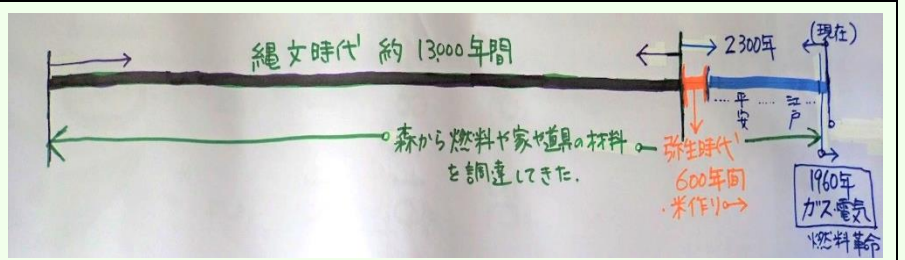 縄文時代 約13,000年間
2300年
(現在)
....平安....江戸
森から燃料や家や道具の材料
を調達してきた.
弥生時代
600年間
・米作り
1960年
ガス・電気
燃料革命